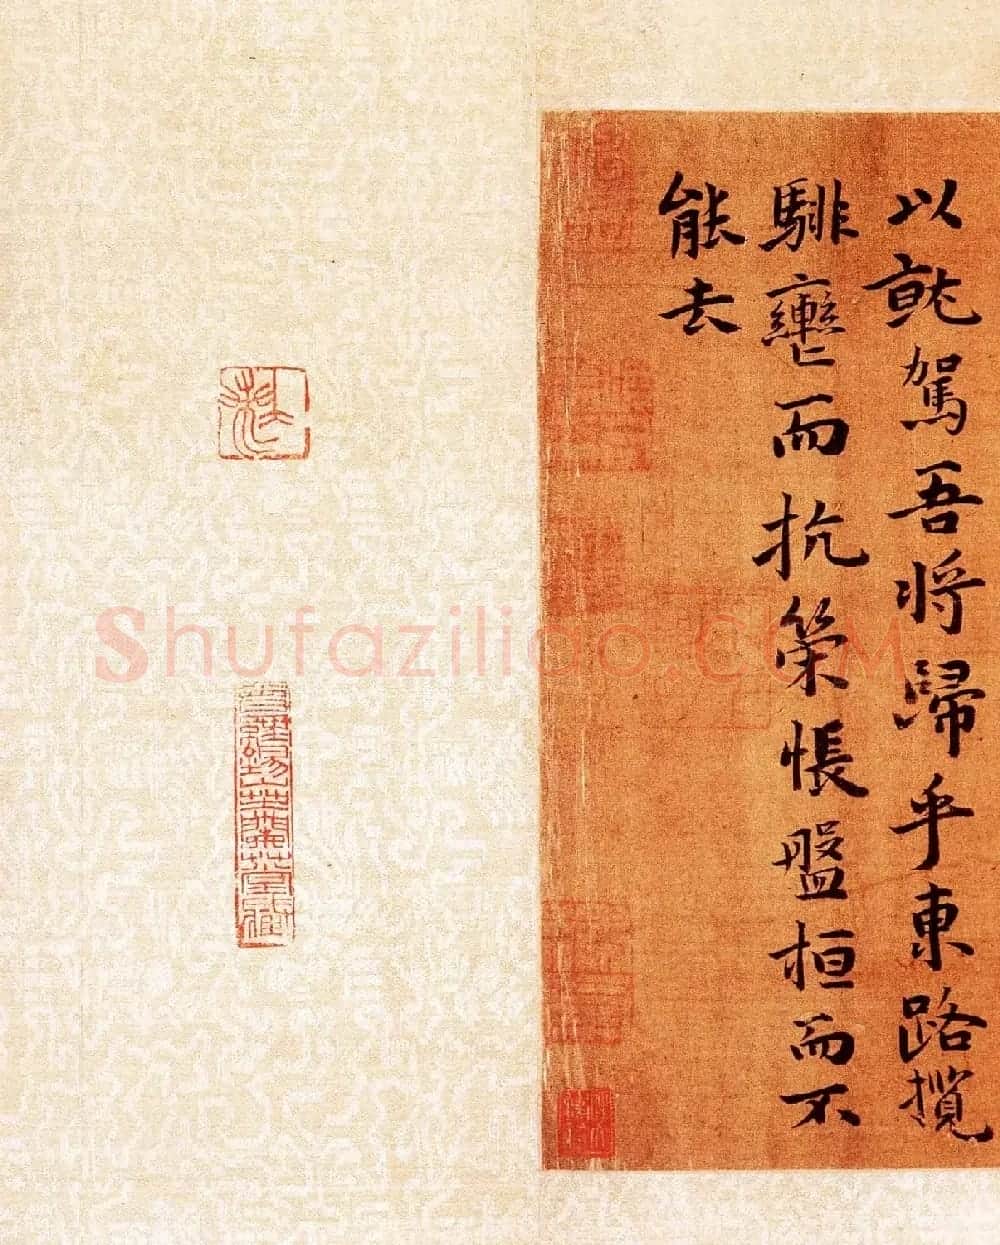 以就駕吾將歸乎東路攬
騑轡而抗策悵盤桓而不
能去
Shufaziliao.com